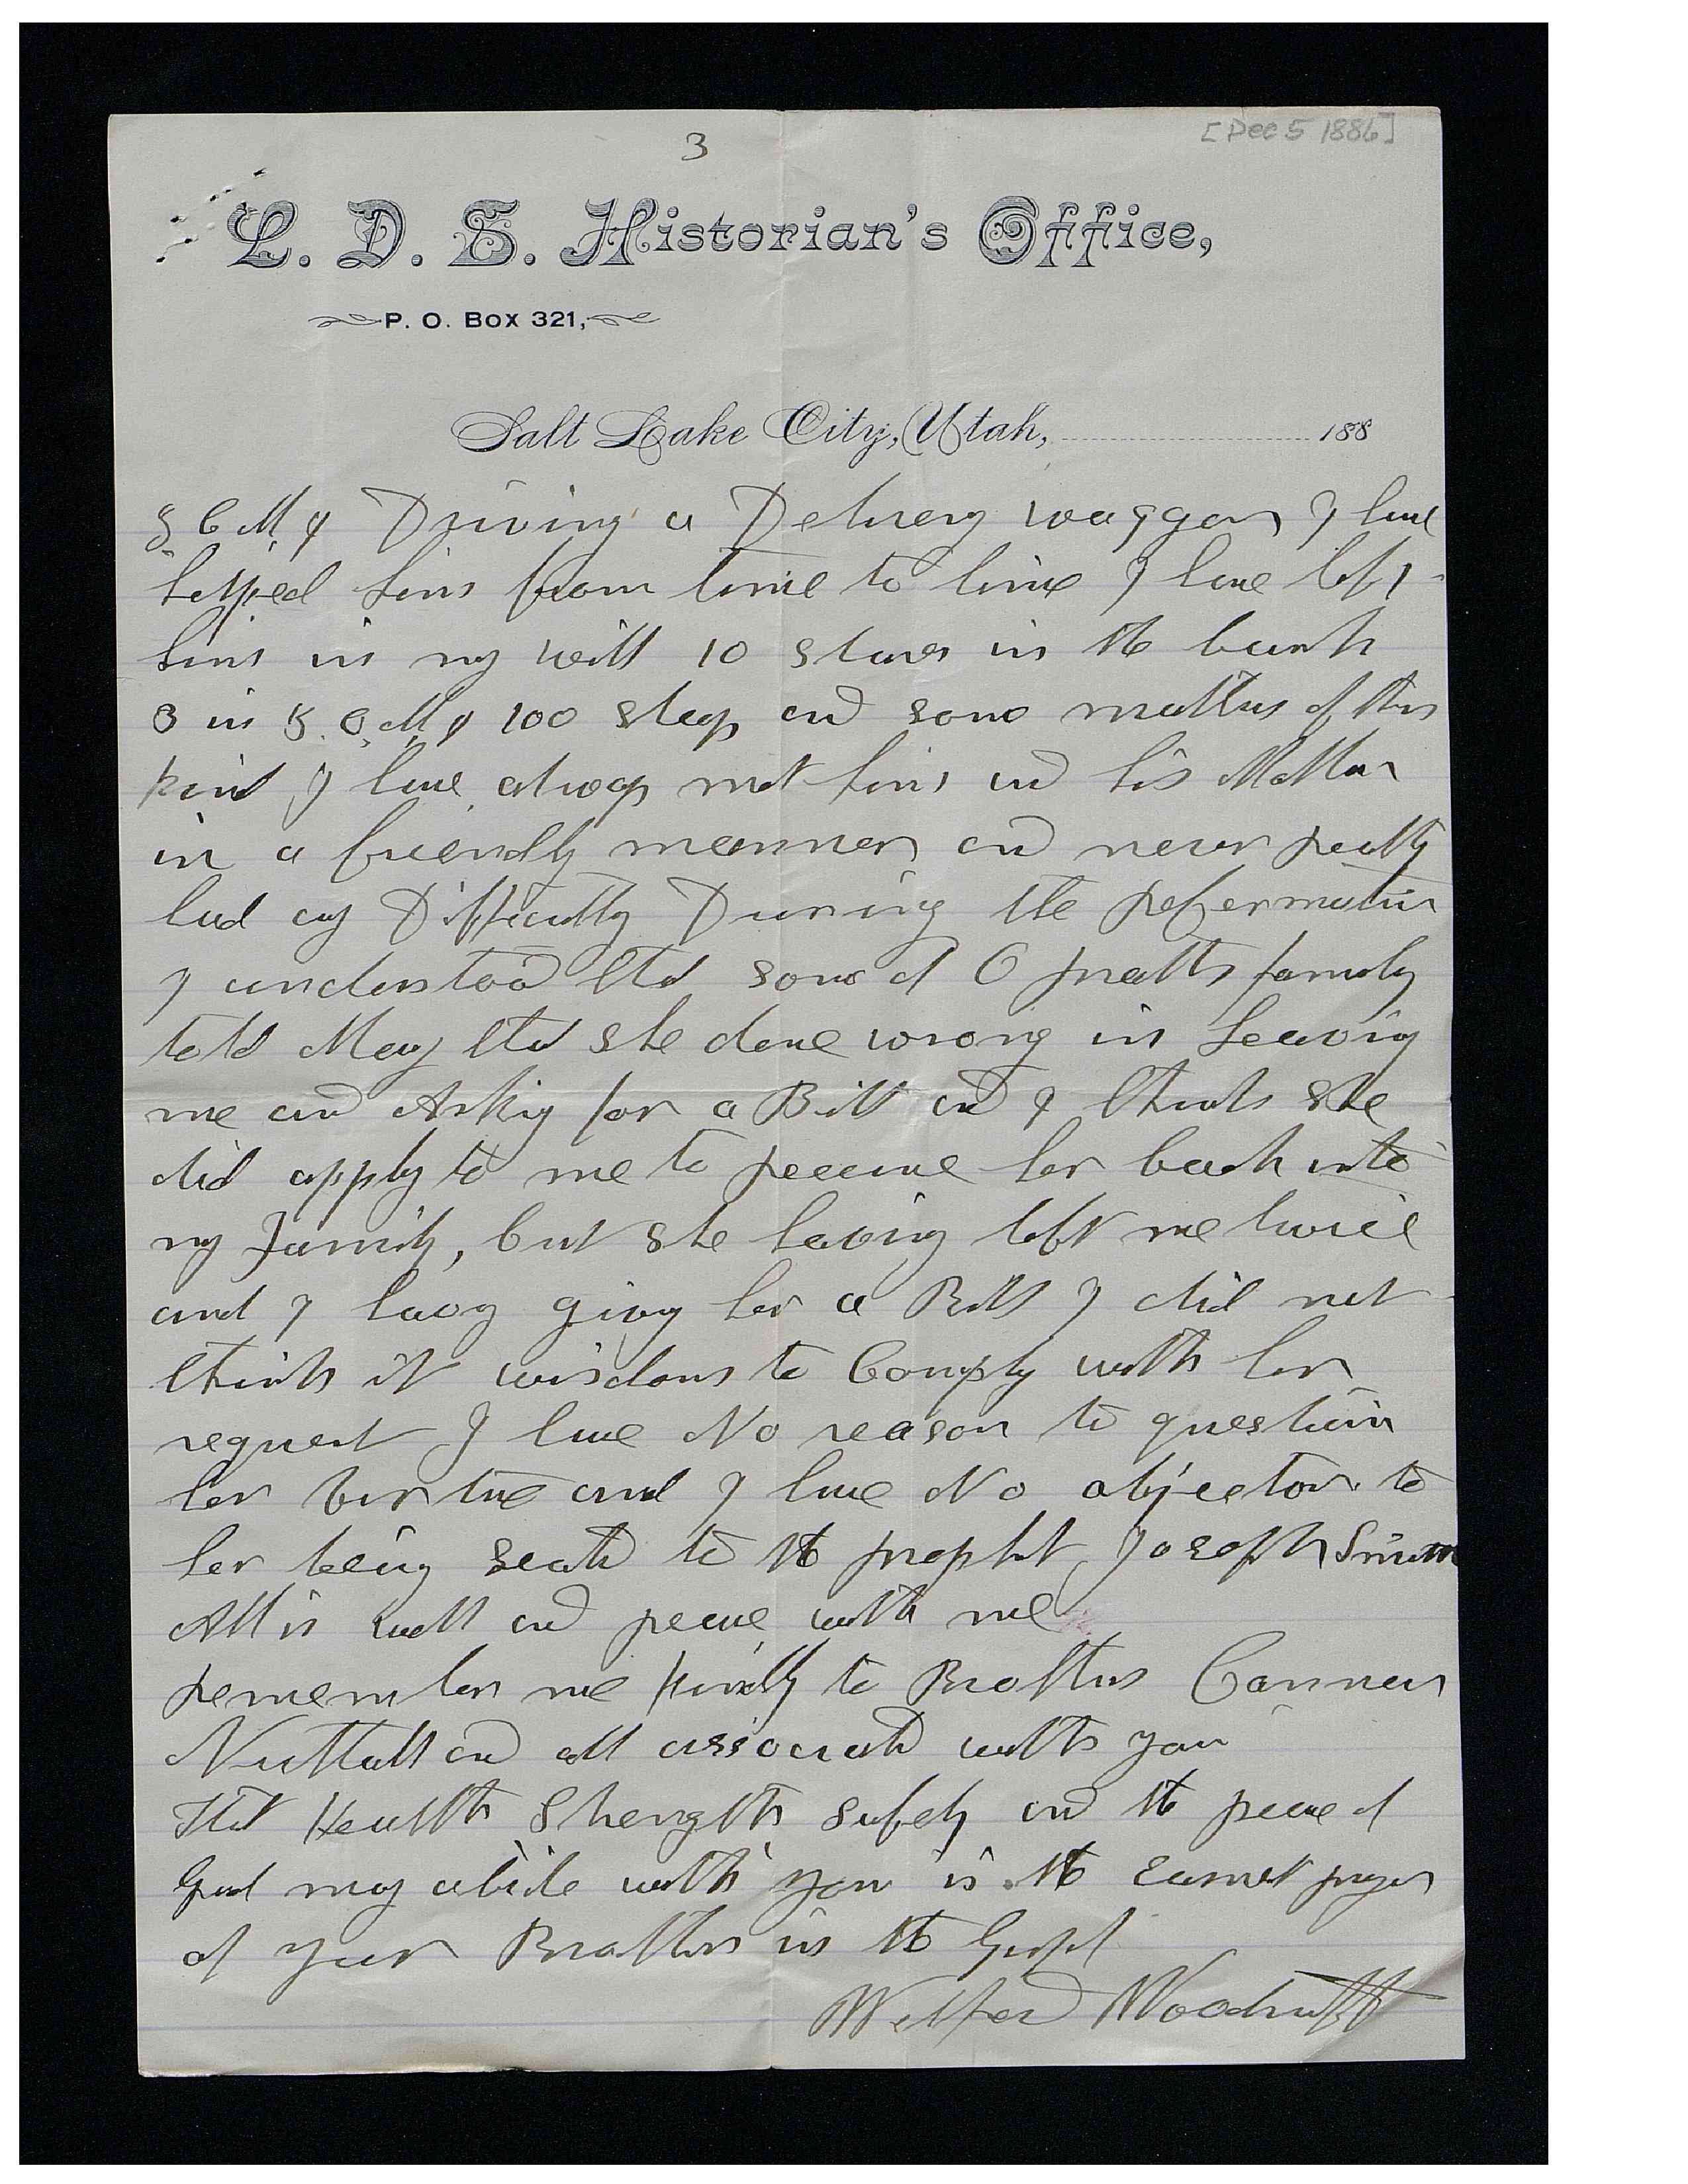 3
[Dec 5 1886]
L. D. S. Historian's Office,
P. O. Box 321,
Salt Lake City, Utah, 188
Z C M I Driving a Delivery waggon I have
helped him from time to time I have left
him in my will 10 shares in the bank
3 in Z. C. M I 100 sheep and some matters of this
kind I have always met him and his Mother
in a friendly manner and never really
had any Difficulty During the reformation
I understood that some of O pratts family
told Mary that she done wrong in Leaving
me and Asking for a Bill and I think she
did apply to me to receive her back into
my Family, but she having left me twice
and I having giving her a Bill I did not
think it wisdom to Comply with her
request I have No reason to question
her virtue and I have No objection to
her being seald to the prophet Joseph Smith
All is well and peace with me
remember me kindly to Brothers Cannon
Nuttall and all associated with you
That Health Strength safety and the peace of
God may abide with you is the earnest prayer
of your Brother in the Gospel
Wilford Woodruff